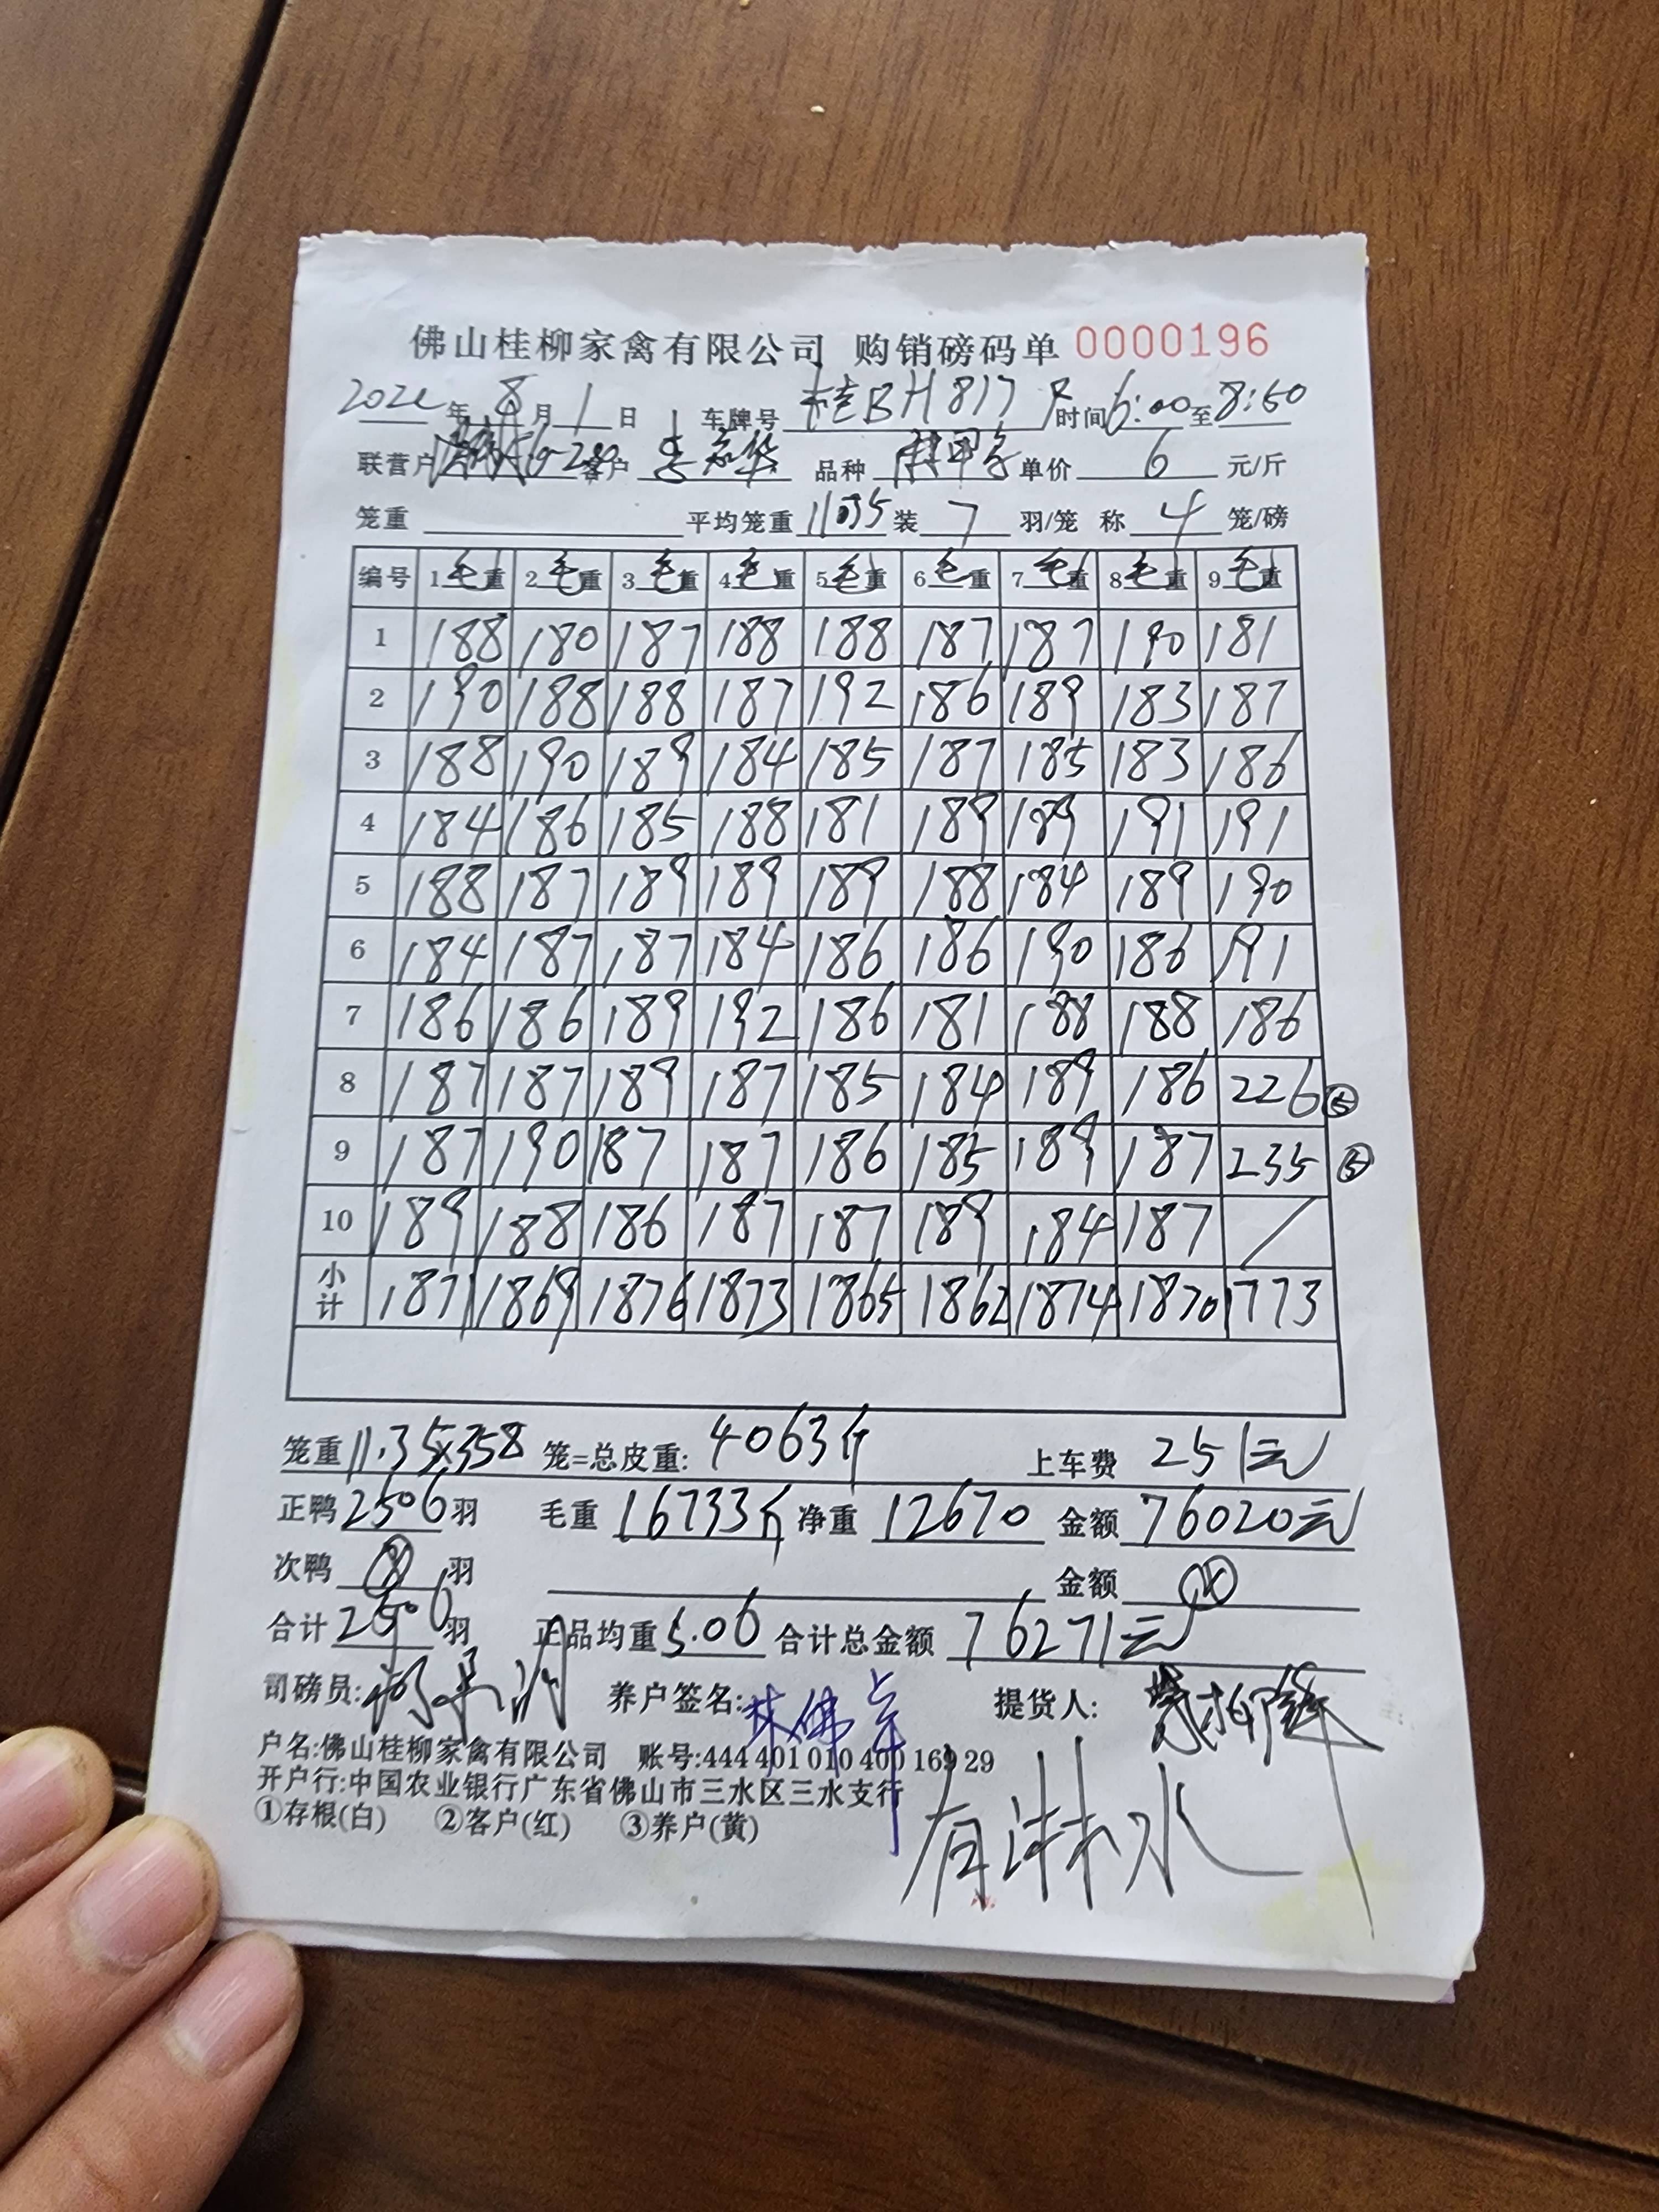 佛山桂柳家禽有限公司 购销磅码单 0000196
年 8 月 1 日 车牌号 桂BH817 时间 6:00 至 8:50
联营户 客户 品种 单价 6 元/斤
笼重 平均笼重 11.35 装 7 羽/笼 称 4 笼/磅
编号 1毛重 2毛重 3毛重 4毛重 5毛重 6毛重 7毛重 8毛重 9毛重
1 188 180 187 188 188 187 187 190 181
2 190 188 188 187 192 186 189 183 187
3 188 190 189 184 185 187 185 183 186
4 184 186 185 188 181 189 189 191 191
5 188 187 189 189 189 188 184 189 190
6 184 187 187 184 186 186 190 186 191
7 186 186 189 192 186 181 188 188 186
8 187 187 189 187 185 184 189 186 226 ⑤
9 187 190 187 187 186 185 189 187 235 ⑤
10 189 188 186 187 187 189 184 187 /
小计 1871 1869 1876 1873 1865 1862 1874 1870 1773
笼重 11.35x358 笼=总皮重: 4063斤 上车费 251元
正鸭 2506 羽 毛重 16733斤 净重 12670 金额 76020元
次鸭 羽 金额
合计 2506 羽 正品均重 5.06 合计总金额 76271元
司磅员: 养户签名: 提货人:
户名:佛山桂柳家禽有限公司 账号:444 401 010 400 169 29
开户行:中国农业银行广东省佛山市三水区三水支行
①存根(白) ②客户(红) ③养户(黄)
有淋水